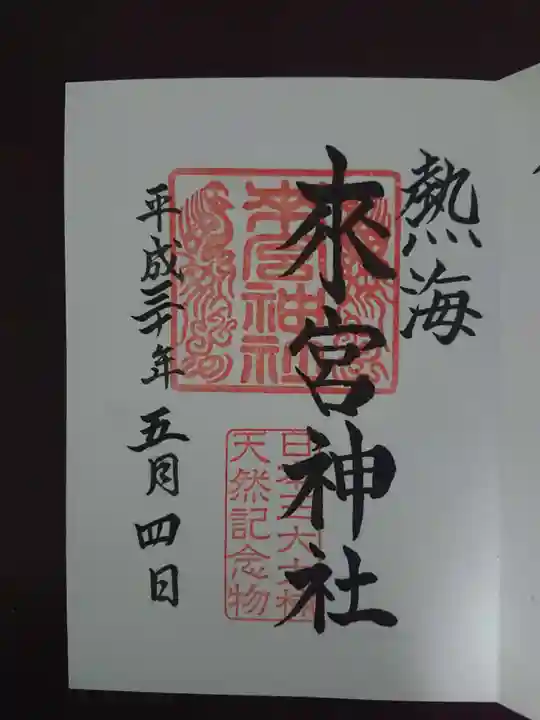 熱海
來宮神社
平成三十年五月四日
來宮神社
天然記念物